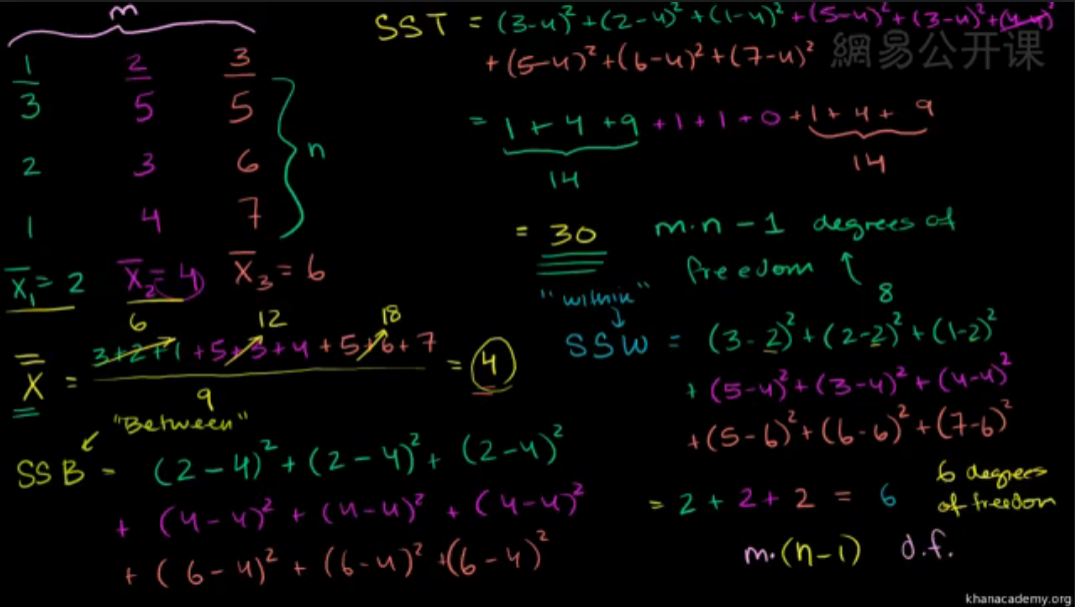 m
1 2 3
3 5 5
2 3 6
1 4 7
n
X̄₁ = 2 X̄₂ = 4 X̄₃ = 6
6 12 18
X̿ = (3+2+1+5+3+4+5+6+7)/9 = 4
"Between"
SSB = (2-4)² + (2-4)² + (2-4)²
+ (4-4)² + (4-4)² + (4-4)²
+ (6-4)² + (6-4)² + (6-4)²
SST = (3-4)² + (2-4)² + (1-4)² + (5-4)² + (3-4)² + (4-4)²
+ (5-4)² + (6-4)² + (7-4)²
網易公开课
= 1 + 4 + 9 + 1 + 1 + 0 + 1 + 4 + 9
14 14
= 30 m·n - 1 degrees of
freedom
8
"within"
SSW = (3-2)² + (2-2)² + (1-2)²
+ (5-4)² + (3-4)² + (4-4)²
+ (5-6)² + (6-6)² + (7-6)²
= 2 + 2 + 2 = 6
6 degrees
of freedom
m·(n-1) d.f.
khanacademy.org